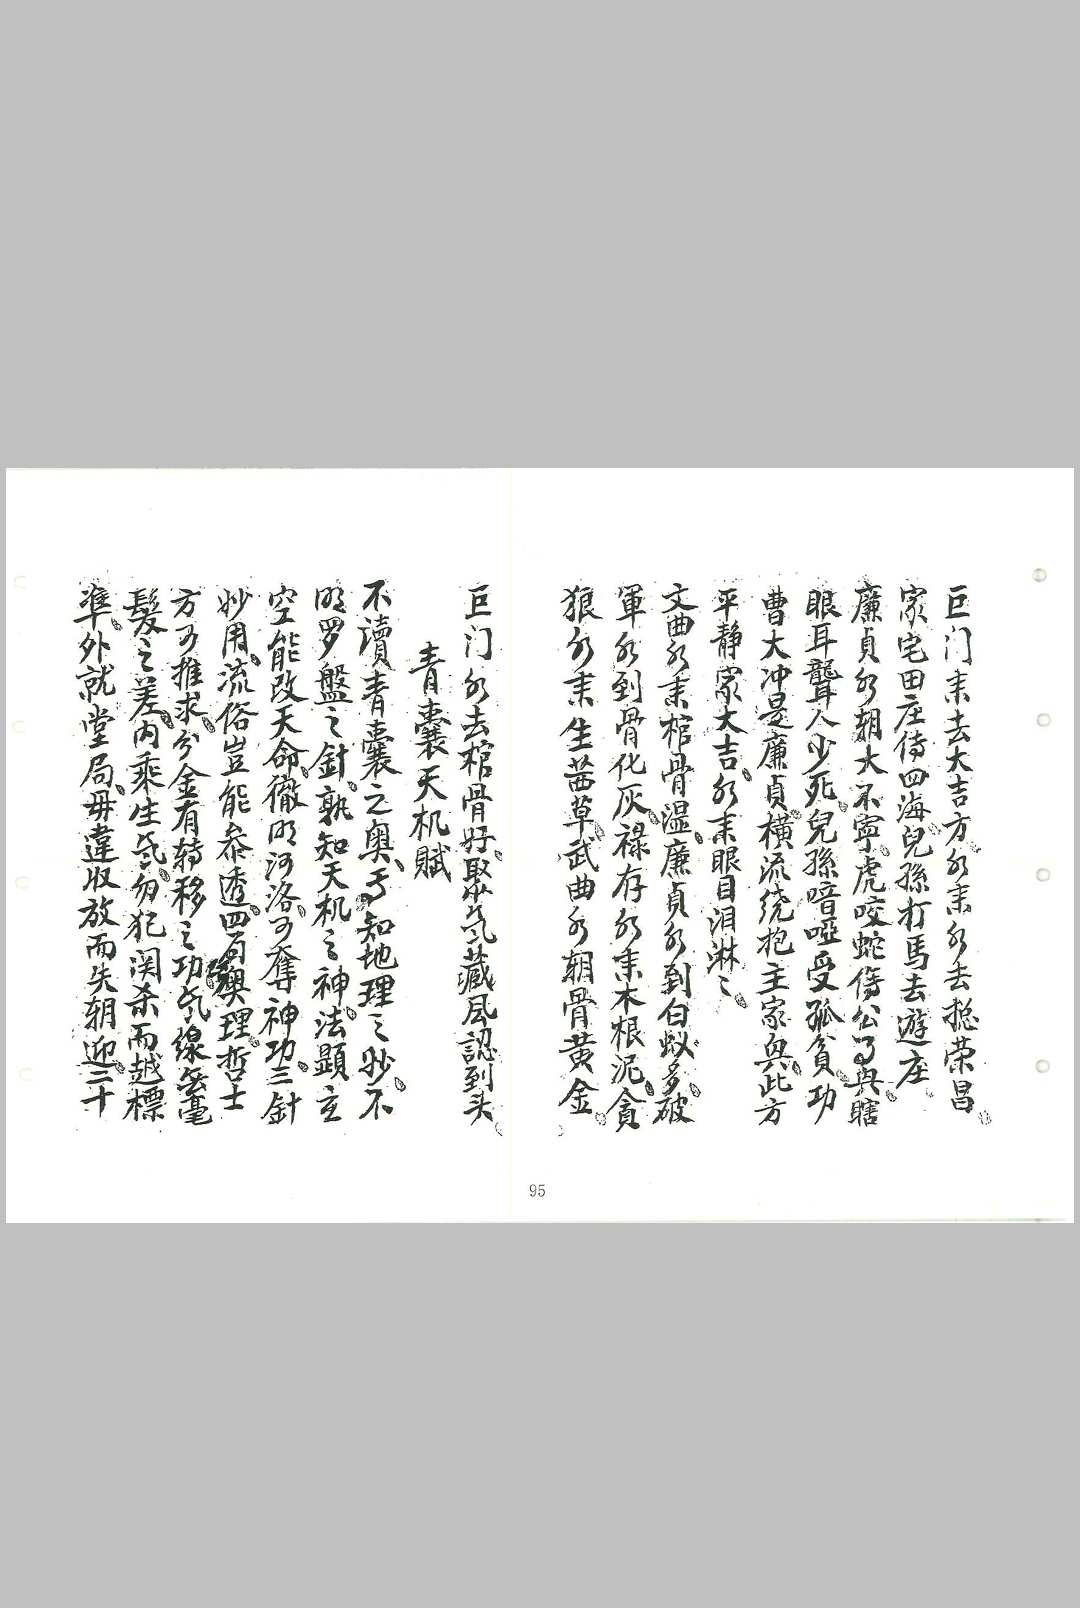 巨门来去大吉方水来水去揔荣昌
家宅田庄侍四海兒孫打馬去遊庄
廉貞水朝大不寧虎咬蛇傷公与瞎
眼耳聾人少死兒孫喑啞受孤貧功
曹大冲是廉貞橫流绕抱主家與此方
平静家大吉水来眼目泪淋〻
文曲水来棺骨湿廉貞水到白蚁多破
軍水到骨化灰禄存水来木根泥貪
狼水来生茜草武曲水朝骨黄金
巨门水去棺骨好聚氣藏风認到头
青囊天机賦
不讀青囊之奥乌知地理之妙不
明罗盤之針孰知天机之神法顕主
空能改天命徹明河洛可奪神功三針
妙用流俗豈能参透四奥理哲士
方可推求分金有转移之功氣線無毫
髮之差内乘生氣勿犯関杀而越標
準外就堂局毋違收放而失朝迎二十
95